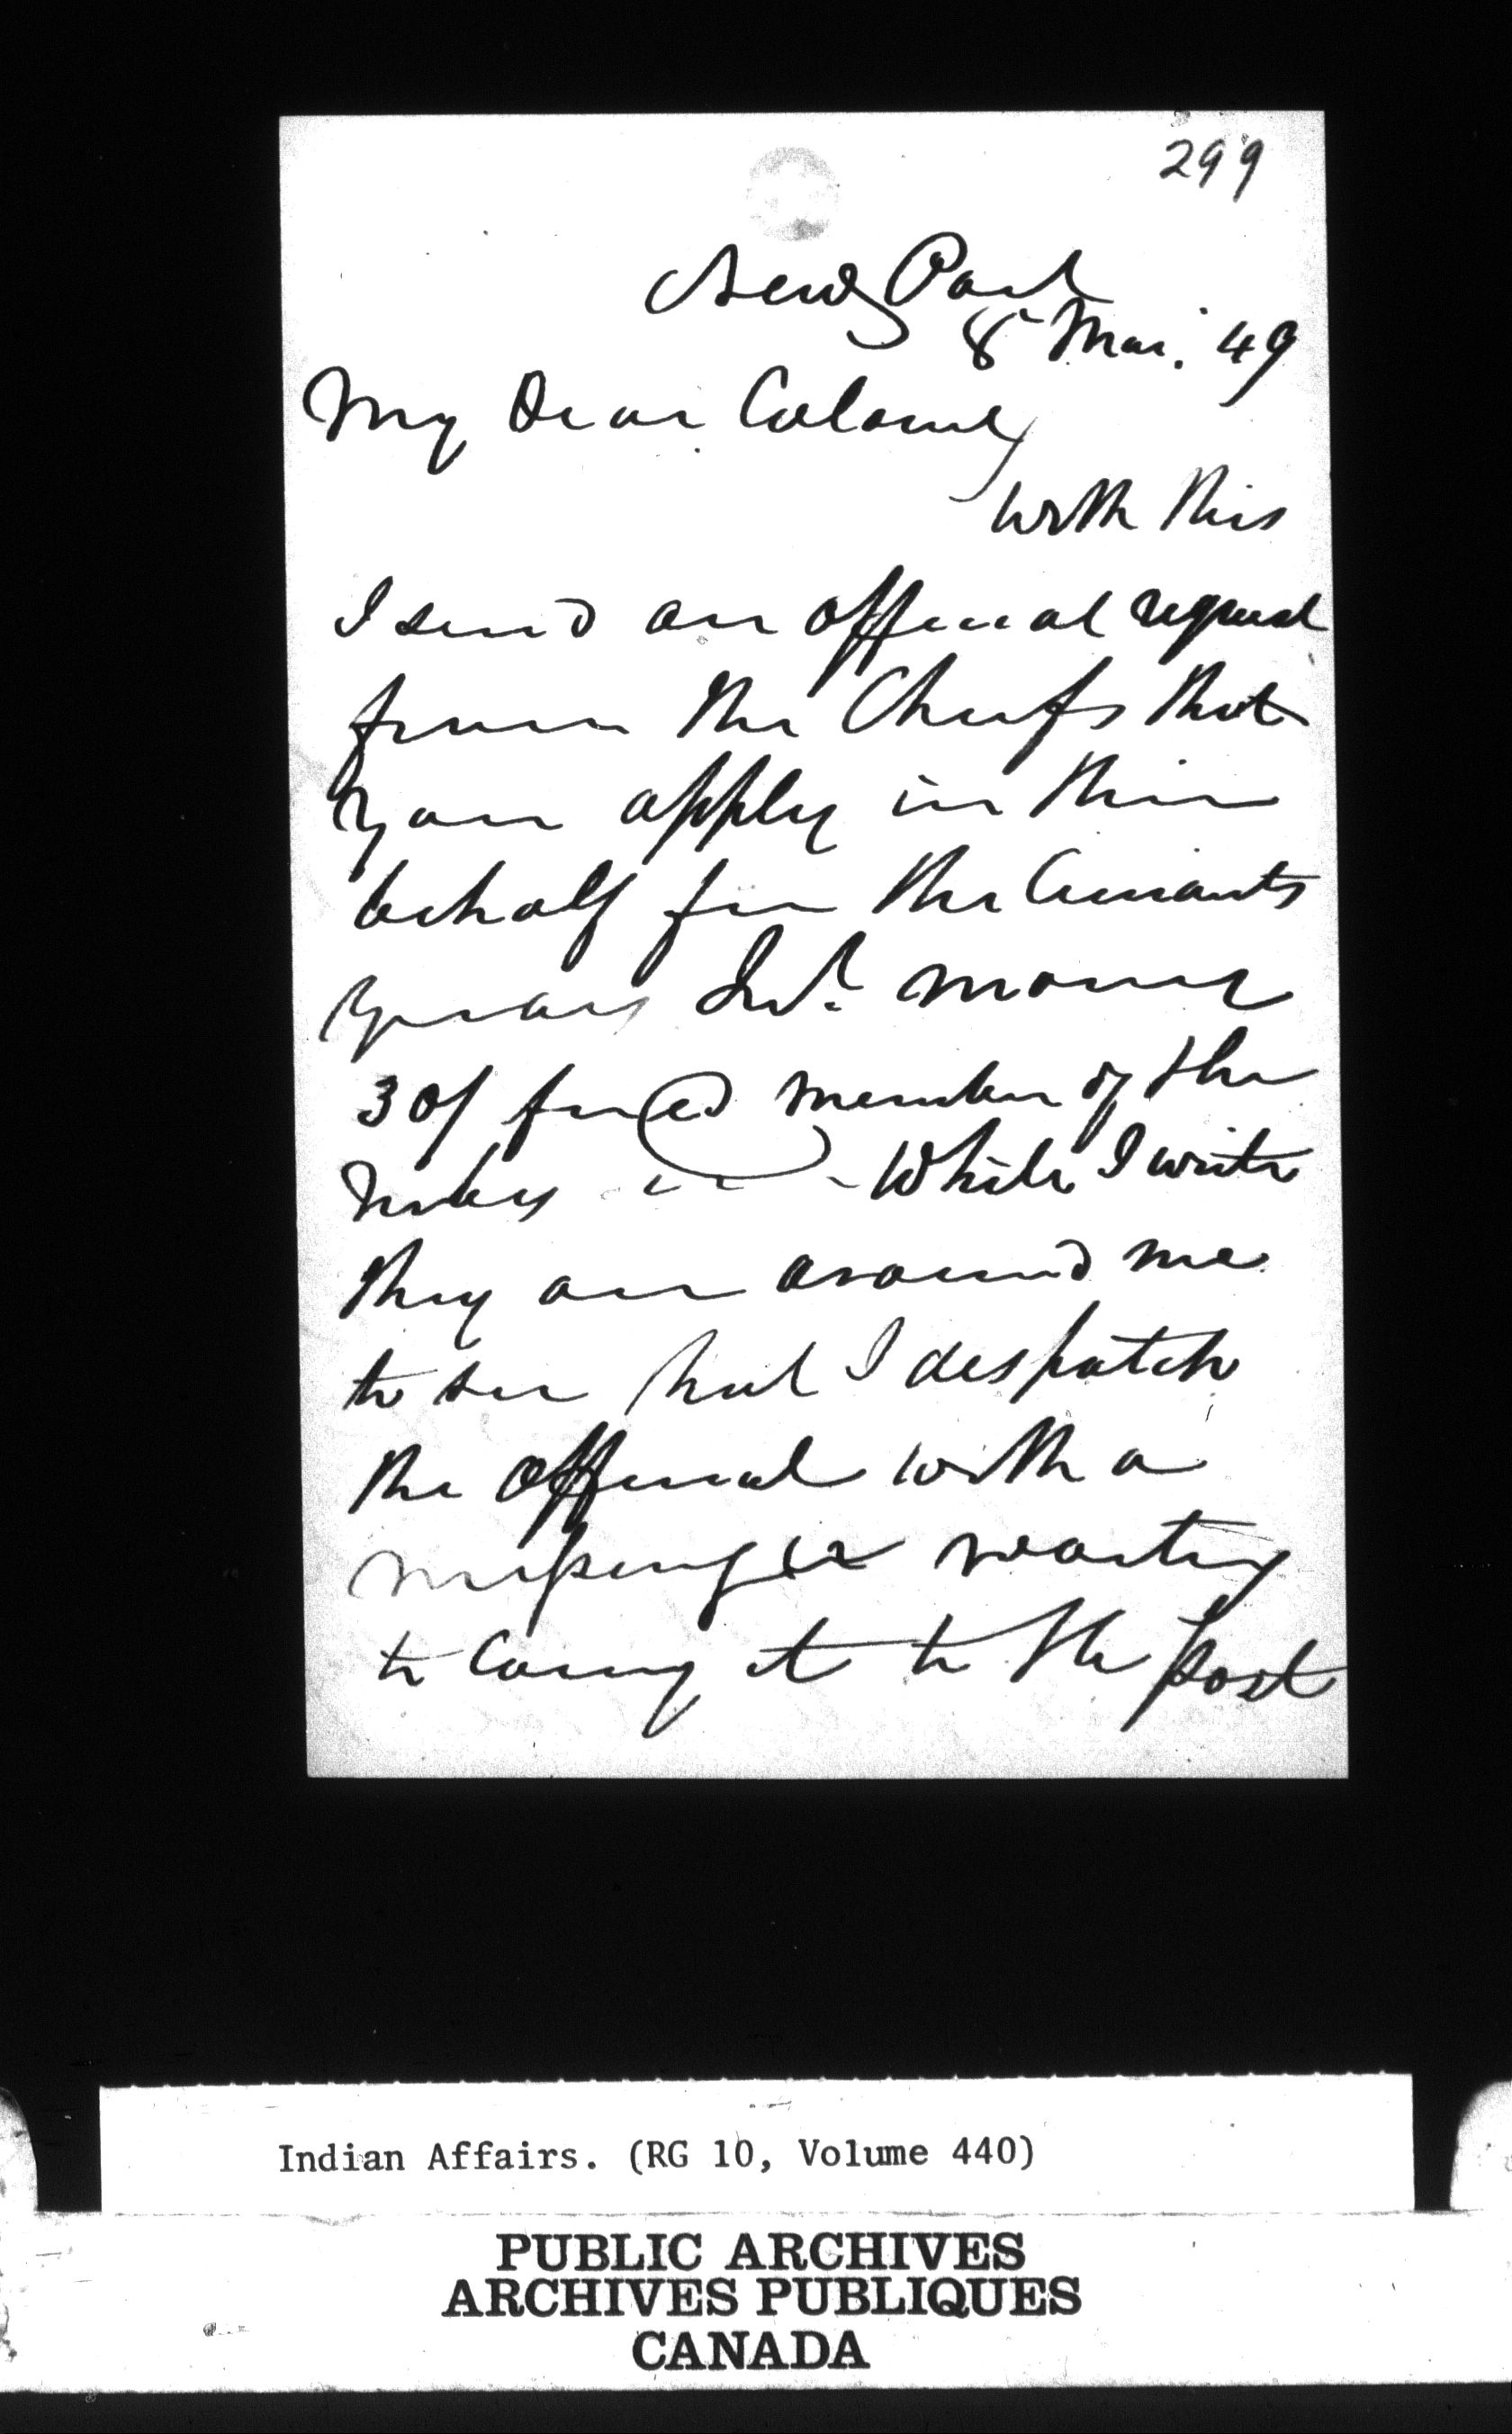 299
Newport
8 Mar. 49
My Dear Colonel
With this
I send an official request
from the Chiefs that
you apply in their
behalf for the Currants
years Int. money
30/ for member of the
While I write
they are around me
to see that I despatch
the official with a
messenger waiting
to carry it to the post
Indian Affairs. (RG 10, Volume 440)
PUBLIC ARCHIVES
ARCHIVES PUBLIQUES
CANADA